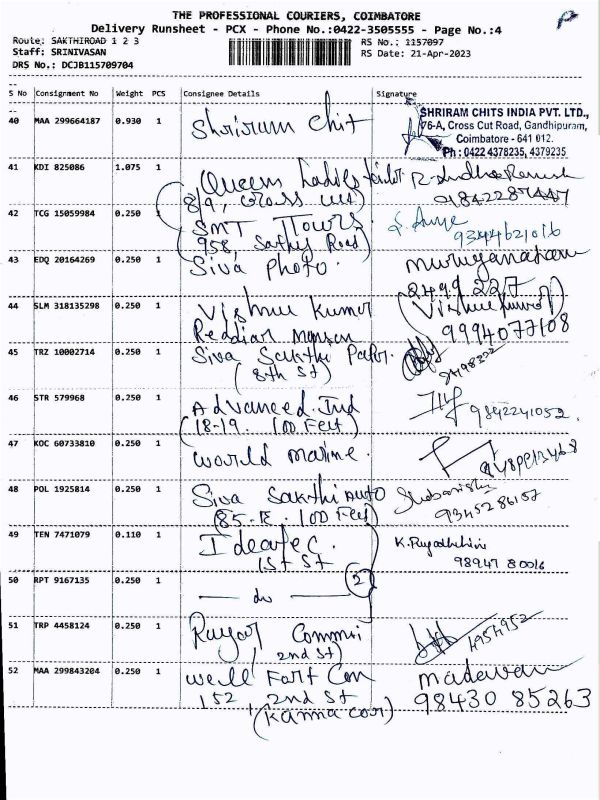 THE PROFESSIONAL COURIERS, COIMBATORE
Delivery Runsheet - PCX - Phone No.:0422-3505555 - Page No.:4
Route: SAKTHIROAD 1 2 3 RS No.: 1157097
Staff: SRINIVASAN RS Date: 21-Apr-2023
DRS No.: DCJB115709704
S No Consignment No Weight PCS Consignee Details Signature
40 MAA 299664187 0.930 1 Shriram Chit
SHRIRAM CHITS INDIA PVT. LTD.,
76-A, Cross Cut Road, Gandhipuram,
Coimbatore - 641 012.
Ph : 0422 4378235, 4379235
41 KDI 825086 1.075 1 Queens Ladies
8/9, Cross cut
42 TCG 15059984 0.250 1 SMT Tours
958, Sathy Road 9344621016
43 EDQ 20164269 0.250 1 Siva Photo. Muruganatham
2499 227
44 SLM 318135298 0.250 1 Vishnu Kumar (Vishnu Kumar)
Reddiar Mansion 9994077108
45 TRZ 10002714 0.250 1 Siva Sakthi Papr.
(8th St)
46 STR 579968 0.250 1 Advanced Ind
18-19. 100 Feet) 9842241052
47 KOC 60733810 0.250 1 World Marine.
48 POL 1925814 0.250 1 Siva Sakthi Auto
(85-E. 100 Feet) 9345286157
49 TEN 7471079 0.110 1 Ideatec.
1st St 98947 80016
50 RPT 9167135 0.250 1 — do — 2
51 TRP 4458124 0.250 1 Commi
2nd St) 4954952
52 MAA 299843204 0.250 1 Well Fort Con Madavan
152, 2nd St 98430 85263